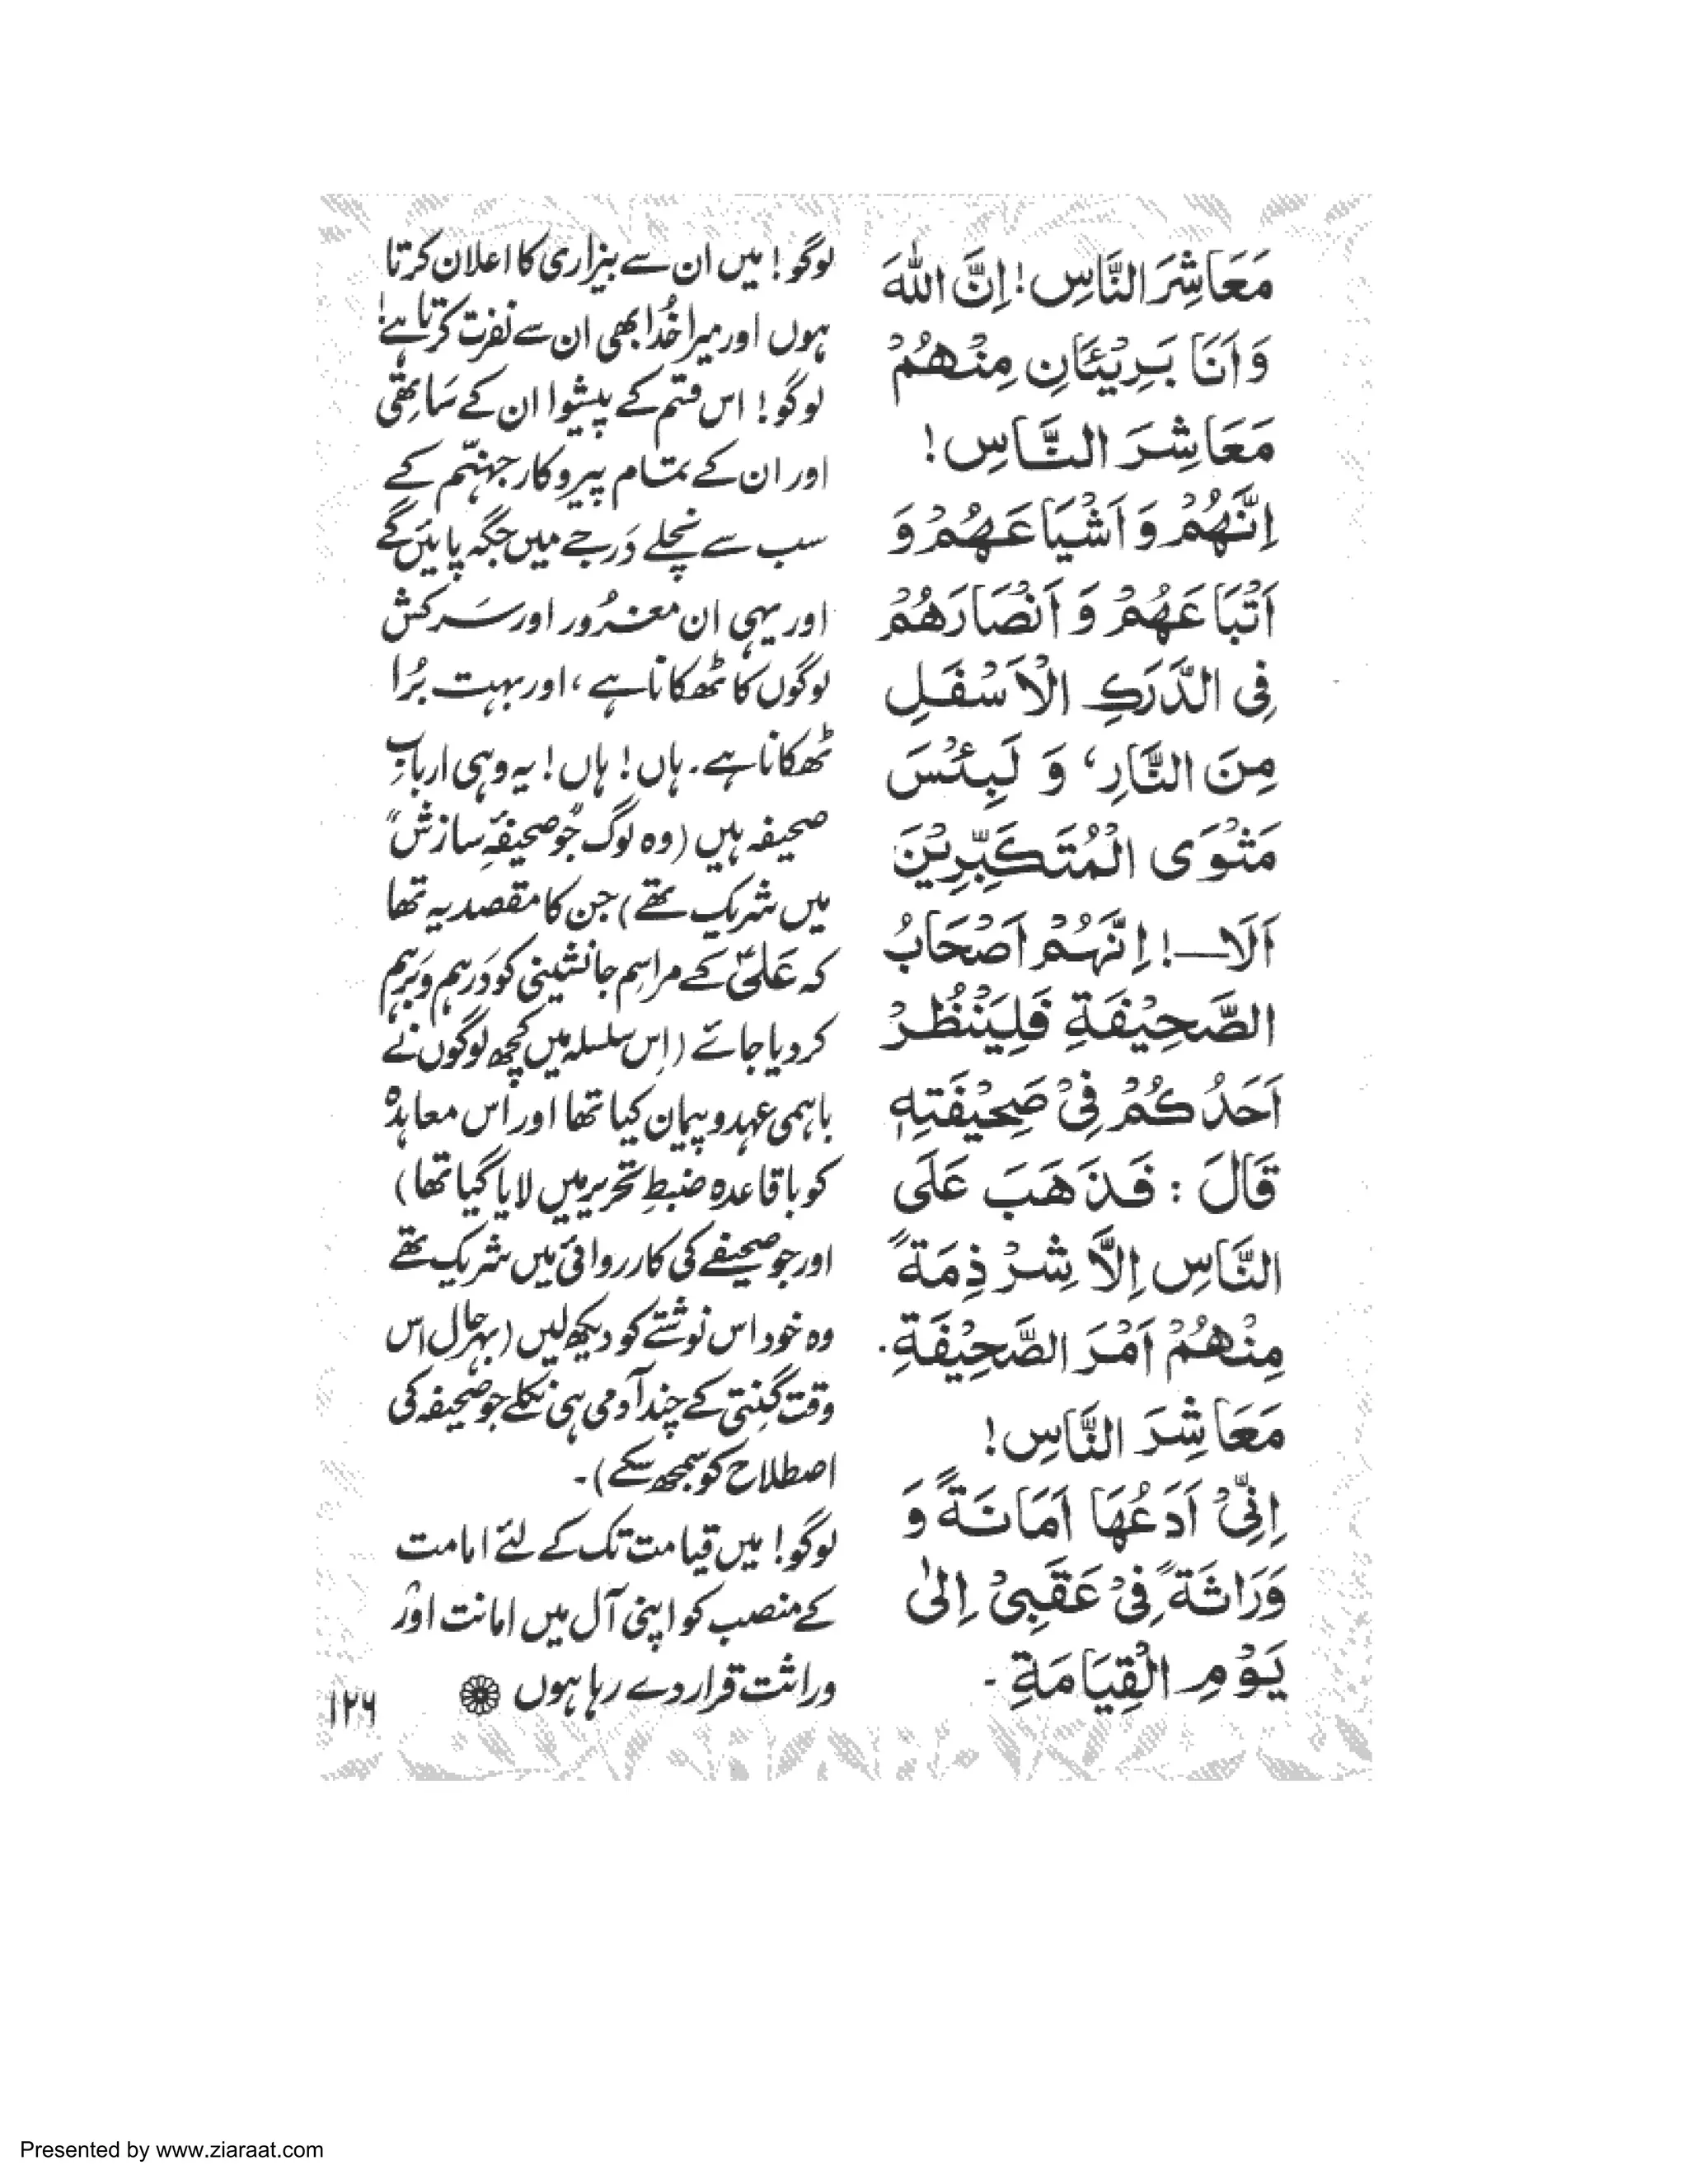 مَعَاشِرَ النَّاسِ! اِنَّ اللّٰهَ
وَ اَنَا بَرِيْئَانِ مِنْهُمْ
مَعَاشِرَ النَّاسِ!
اِنَّهُمْ وَ اَشْيَاعَهُمْ وَ
اَتْبَاعَهُمْ وَ اَنْصَارَهُمْ
فِى الدَّرَكِ الْاَسْفَلِ
مِنَ النَّارِ، وَ لَبِئْسَ
مَثْوَى الْمُتَكَبِّرِيْنَ
اَلَا—! اِنَّهُمْ اَصْحَابُ
الصَّحِيْفَةِ فَلْيَنْظُرْ
اَحَدُكُمْ فِىْ صَحِيْفَتِهٖ
قَالَ : فَذَهَبَ عَلَى
النَّاسِ اِلَّا شِرْذِمَةً
مِنْهُمْ اَمْرَ الصَّحِيْفَةِ۔
مَعَاشِرَ النَّاسِ!
اِنِّىْ اَدَعُهَا اَمَانَةً وَ
وَرَاثَةً فِىْ عَقَبِىْ اِلٰى
يَوْمِ الْقِيَامَةِ ۔
لوگو! میں ان سے بیزاری کا اعلان کرتا
ہوں اور میرا خُدا بھی ان سے نفرت کرتا ہے!
لوگو! اس قسم کے پیشوا ان کے سَاتھی
اور ان کے تمام پیروکار جہنّم کے
سب سے نچلے دَرجے میں جگہ پائیں گے
اور یہی ان مغرُور اور سَرکش
لوگوں کا ٹھکانا ہے، اور بہت بُرا
ٹھکانا ہے۔ ہاں! ہاں! یہ وہی اربابِ
صحیفہ ہیں (وہ لوگ جو "صحیفۂ سازش"
میں شریک تھے) جن کا مقصد یہ تھا
کہ عَلیؑ کے مراسِم جانشینی کو دَرہم وبَرہم
کردیا جائے (اِس سلسلہ میں کچھ لوگوں نے
باہمی عہد و پیمان کیا تھا اور اُس معاہدہ
کو باقاعدہ ضبطِ تحریر میں لایا گیا تھا)
اور جو صحیفے کی کارروائی میں شریک تھے
وہ خود اس نوشتے کو دیکھ لیں (بہرحال اس
وقت گنتی کے چند آدمی ہی نکلے جو صحیفہ کی
اصطلاح کو سمجھ سکے)۔
لوگو! میں قیامت تک کے لئے امامت
کے منصب کو اپنی آل میں امانت اور
وراثت قرار دے رہا ہوں
۱۲۶
Presented by www.ziaraat.com